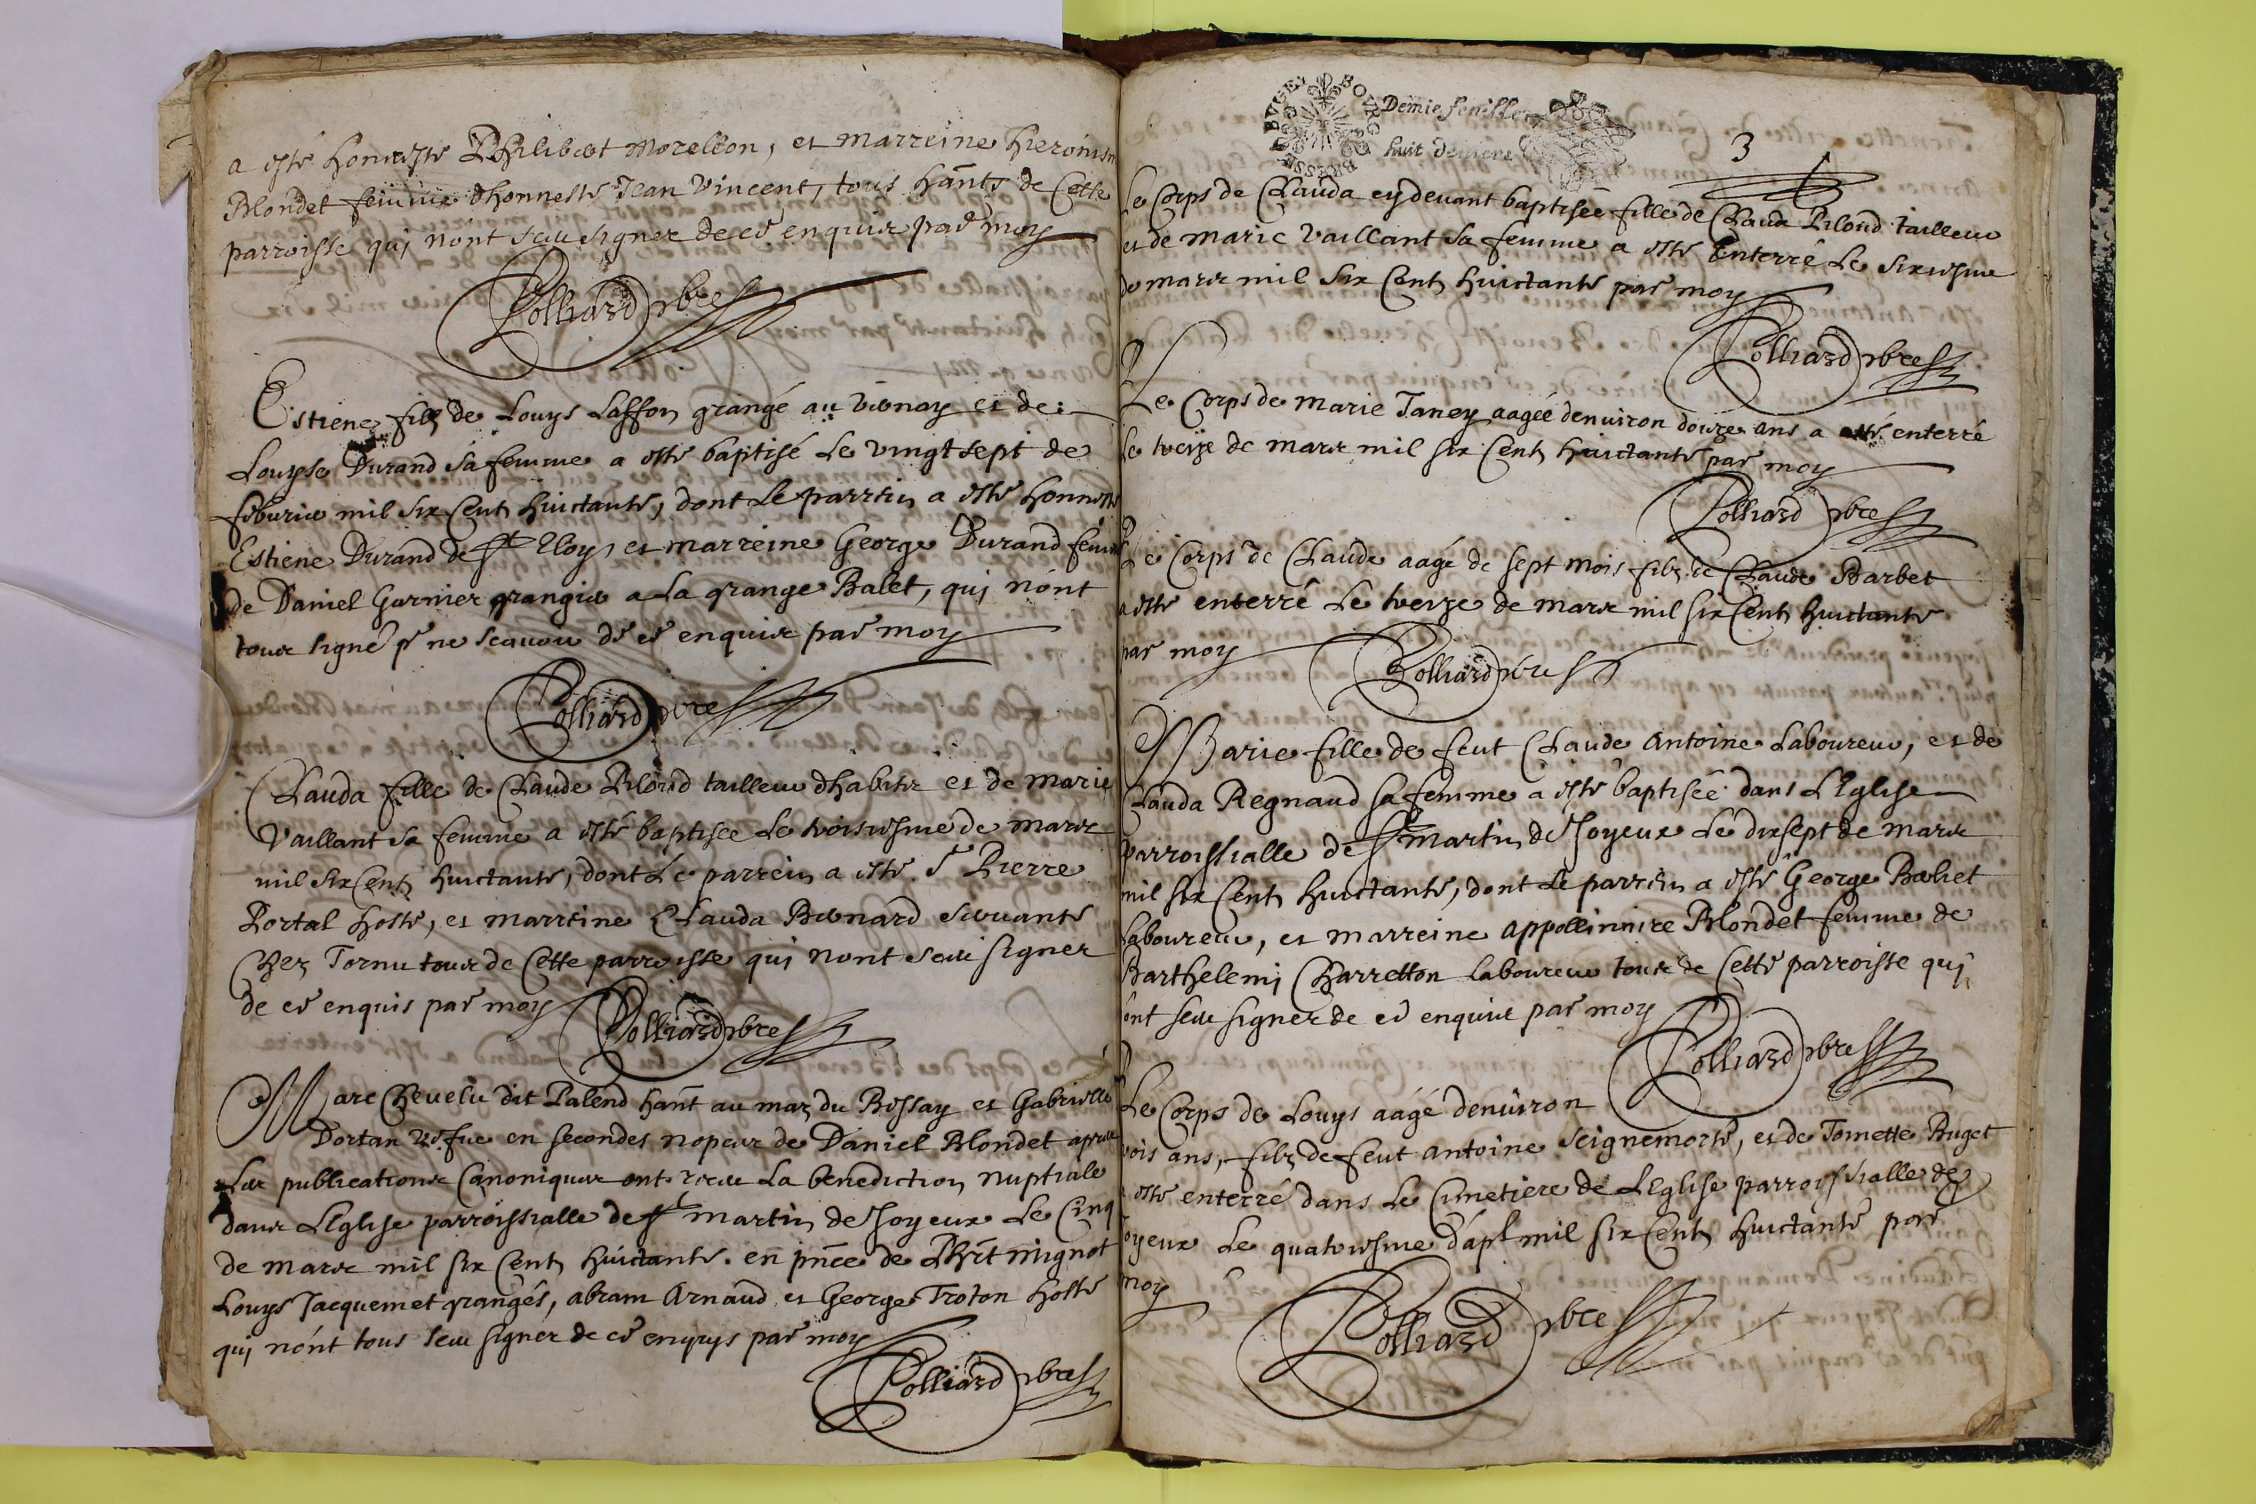 a esté honneste Philibert Morellon, et marreine Hieronim
Blondet femme dhonneste Jean Vincent, tous hãnts de Cette
parroisse qui nont sceu signer de ce enquis par moy
Polliard pbre
Estiene filz de Louys Lasson grangé au Vernay et de
Louyse Durand sa femme a esté baptisé le vingt sept de
feburier mil six Cents huictante, dont le parrein a esté honneste
Estiene Durand de St Eloy, et marreine George Durand femme
de Daniel Garnier grangier a la grange Balet, qui nont
tous signé pr ne scavoir de ce enquis par moy
Polliard pbre
Clauda fille de Claude Pilond tailleur dhabits et de Marie
Vaillant sa femme a esté baptisee le troisiesme de mars
mil six Cents huictante, dont le parrein a esté sr Pierre
Portal hoste, et marreine Clauda Bernard servante
Chez Tornu tous de Cette parroisse qui nont sceu signer
de ce enquis par moy
Polliard pbre
Marc Chevelu dit Palend hãnt au maz du Bessay et Gabrielle
Dortan vefue en secondes nopces de Daniel Blondet apres
les publications Canoniques ont receu la benediction nuptiale
dans LEglise parroissialle de St Martin de Joyeux le Cinq
de mars mil six Cents huictante. en pñce de Phirt mignot
Louys Jacquemet grangés, abram Arnaud et George Troton hoste
qui nont tous sceu signer de ce enqrys par moy
Polliard pbre
BUGEY BOURGO BRESSE
Demie feuille
huit deniers
3
Le Corps de Clauda cy devant baptisée fille de Claude Pilond tailleur
et de Marie Vaillant sa femme a esté enterré le sixiesme
de mars mil six Cents huictante par moy
Polliard pbre
Le Corps de Marie Taney aagée denuiron douze ans a esté enterré
le treize de mars mil six Cents huictante par moy
Polliard pbre
Le Corps de Claude aagé de sept mois filz de Claude Barbet
a esté enterré le treize de mars mil six Cents huictante
par moy
Polliard pbre
Marie fille de feut Claude Antoine laboureur, et de
Clauda Regnaud sa femme a esté baptisée dans LEglise
parroissialle de St Martin de Joyeux le dixsept de mars
mil six Cents huictante, dont le parrein a esté George
laboureur, et marreine appollinnire Blondet femme de
Barthelemi Charretton laboureur tous de Cette parroisse qui
ont sceu signer de ce enquis par moy
Polliard pbre
Le Corps de Louys aagé denuiron
rois ans, filz de feut Antoine Seignemorte, et de Tomette Buget
esté enterré dans le Cimetiere de LEglise parroissialle de
oyeux le quatriesme dapl mil six Cents huictante par
moy
Polliard pbre